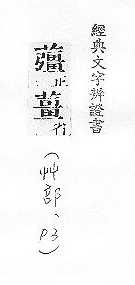 經典文字辨證書
䕬正薑省
(艸部、P3)